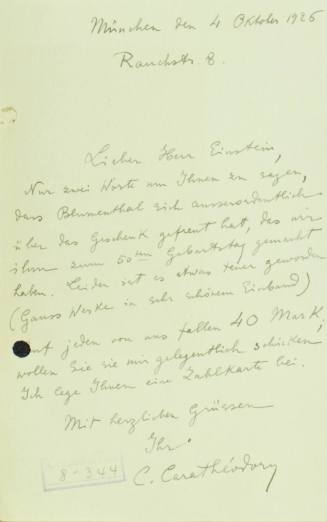 München den 4 Oktober 1926
Rauchstr. 8.
Lieber Herr Einstein,
Nur zwei Worte um Ihnen zu sagen,
dass Blumenthal sich ausserordentlich
über das Geschenk gefreut hat, das wir
ihm zum 50ten Geburtstag gemacht
haben. Leider ist es etwas teuer geworden
(Gauss Werke in sehr schönem Einband)
Auf jeden von uns fallen 40 Mark,
wollen Sie sie mir gelegentlich schicken,
Ich lege Ihnen eine Zahlkarte bei.
Mit herzlichen Grüssen
Ihr
C. Carathéodory
8-344